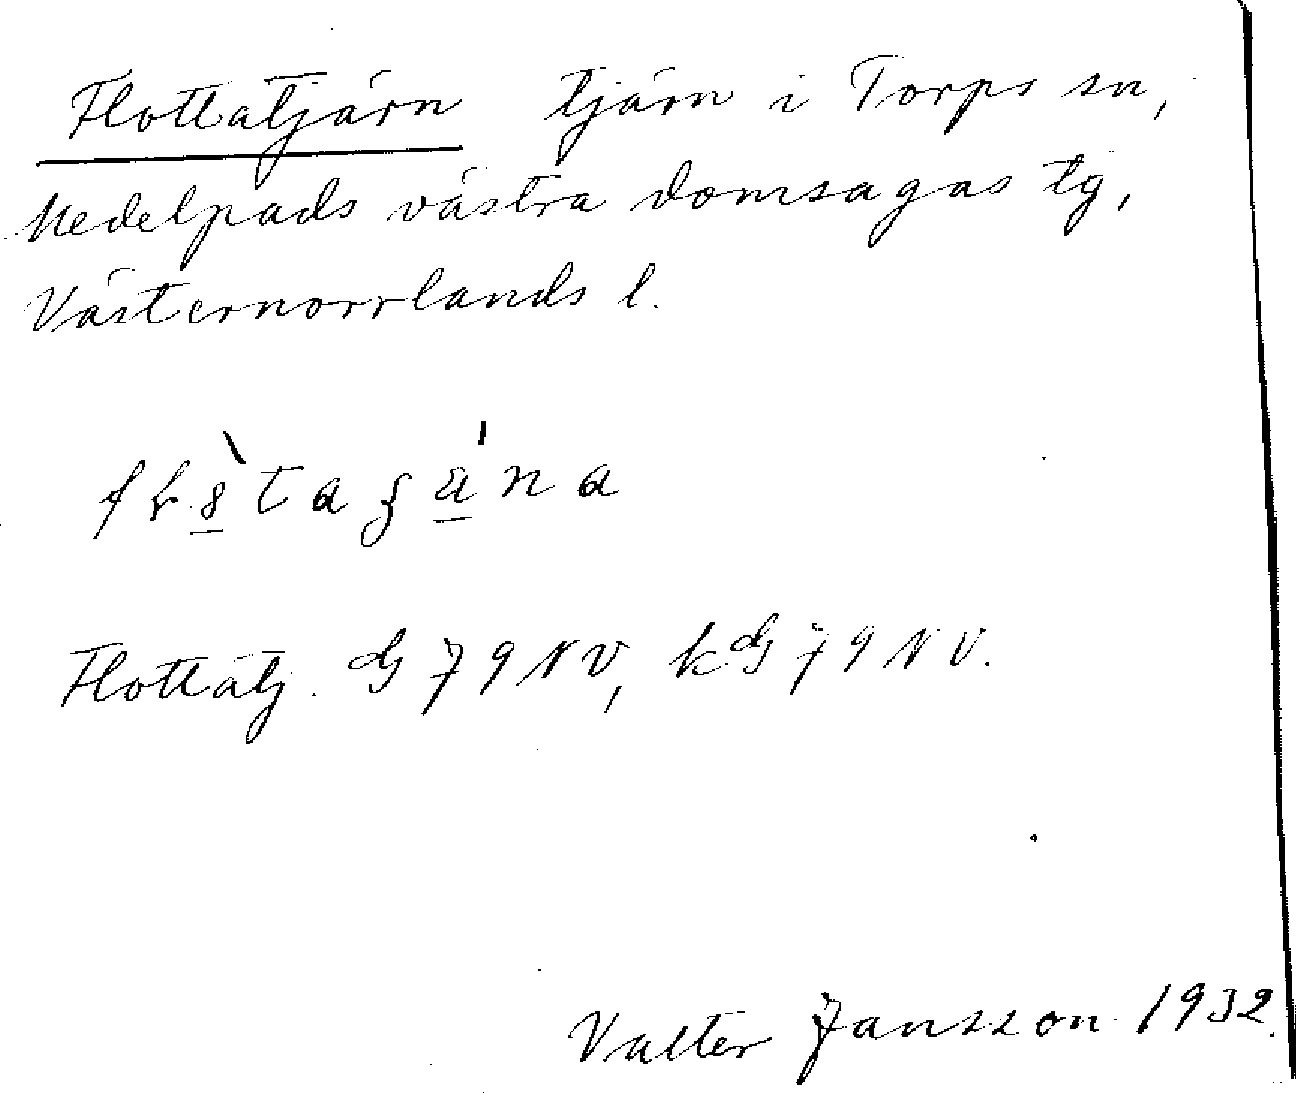 Flottatjärn tjärn i Torps sn,
Medelpads västra domsagas tg,
Västernorrlands l.
Flottatj. G J 9 NV, kG J 9 NV.
Valter Jansson 1932.